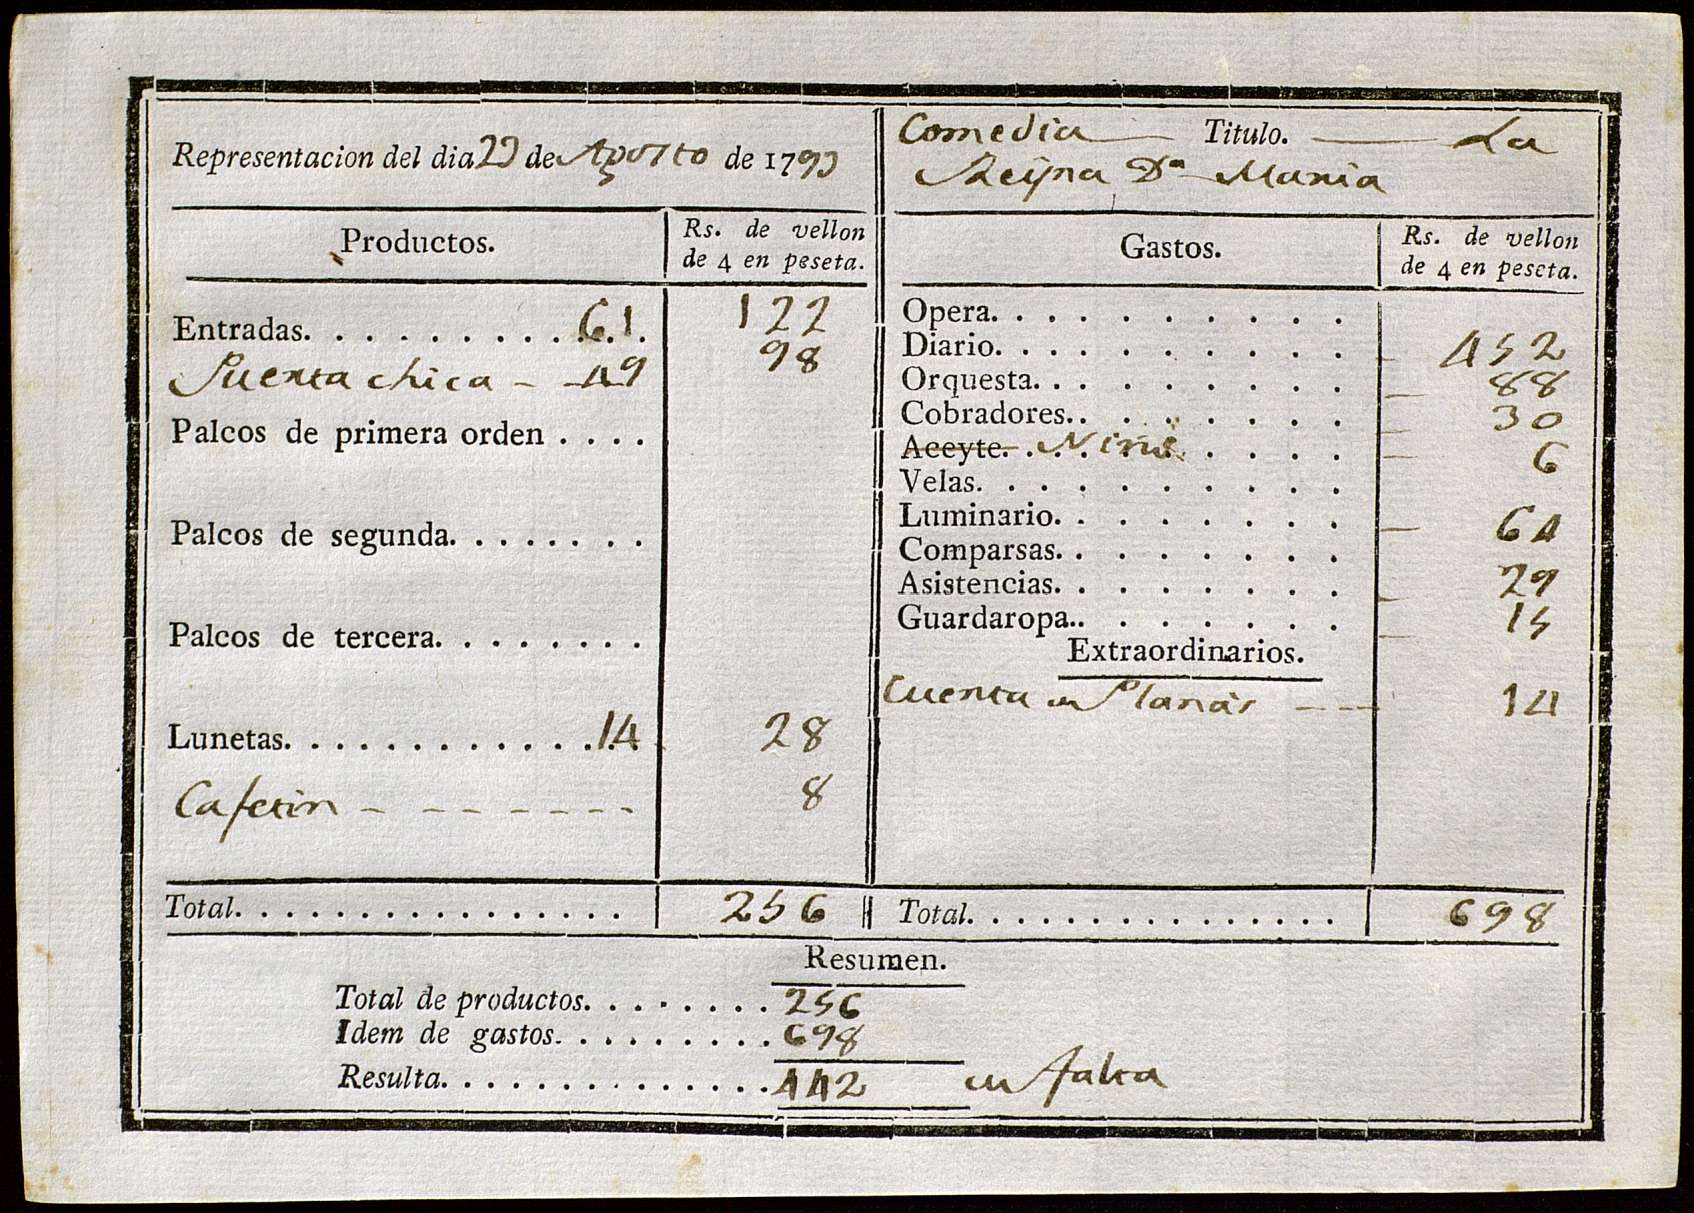 Representacion del dia 23 de Agosto de 1793
Comedia Titulo. La
Reyna Dª Maria
Productos.
Rs. de vellon
de 4 en peseta.
Entradas. 61 122
Puerta chica 49 98
Palcos de primera orden
Palcos de segunda.
Palcos de tercera.
Lunetas. 14 28
Cafetin 8
Total. 256
Gastos.
Rs. de vellon
de 4 en peseta.
Opera.
Diario. 452
Orquesta. 88
Cobradores. 30
Aceyte. 6
Velas.
Luminario. 64
Comparsas.
Asistencias. 29
Guardaropa. 15
Extraordinarios.
Cuenta en Planas 14
Total. 698
Resumen.
Total de productos. 256
Idem de gastos. 698
Resulta. 442 en falta